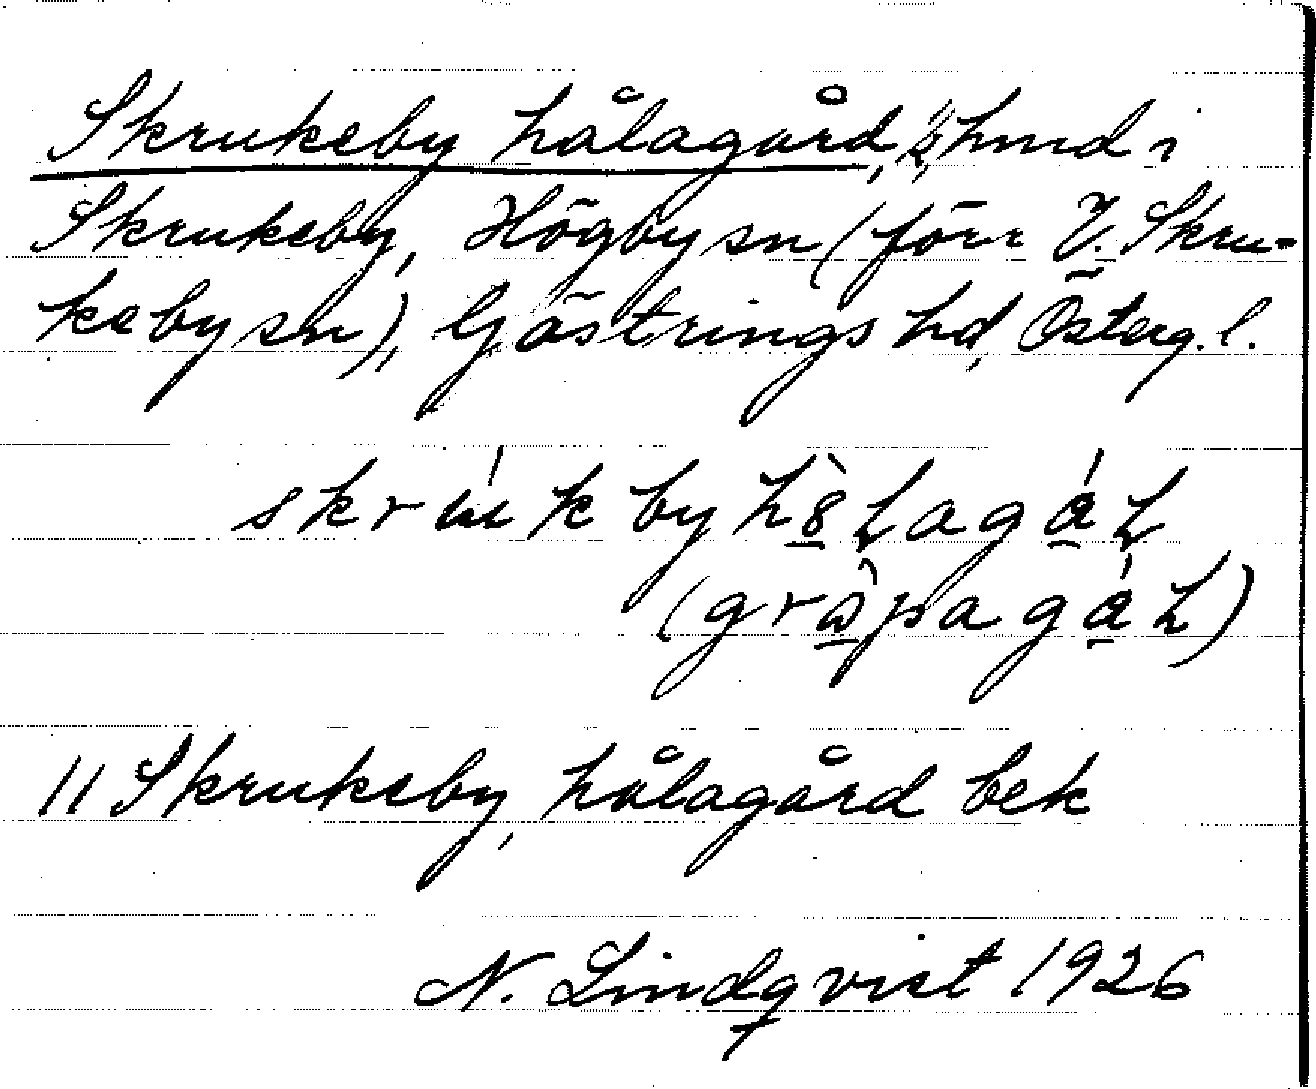 Skrukeby hålagård, ½ hmd i
Skrukeby, Högby sn (förr V. Skru-
keby sn), Göstrings hd, Österg. l.
skrúkby hò̲lagá̲l
(grå̲̀pagá̲l)
// Skrukeby, hålagård bek
N. Lindqvist 1926